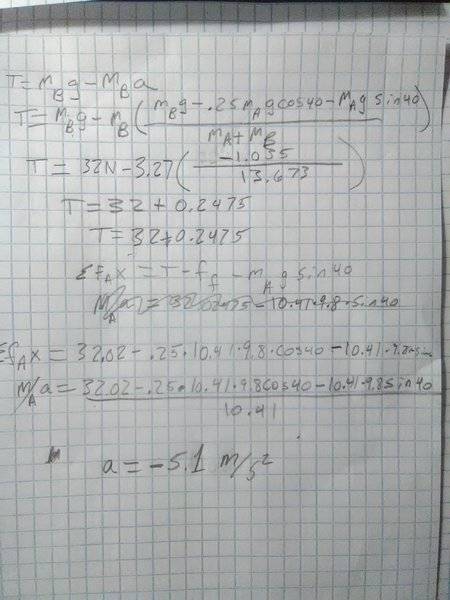 T = m_B g - m_B a
T = m_B g - m_B ( (m_B g - .25 m_A g cos40 - m_A g sin40) / (m_A + m_B) )
T = 32N - 3.27 ( -1.035 / 13.673 )
T = 32 + 0.2475
T = 32 + 0.2475
Σf_A x = T - f_f - m_A g sin40
m_A a = 32.02475 - 10.41·9.8·sin40
Σf_A x = 32.02 - .25·10.41·9.8·cos40 - 10.41·9.8·sin
m_A a = 32.02 - .25·10.41·9.8cos40 - 10.41·9.8sin40
10.41
a = -5.1 m/s²